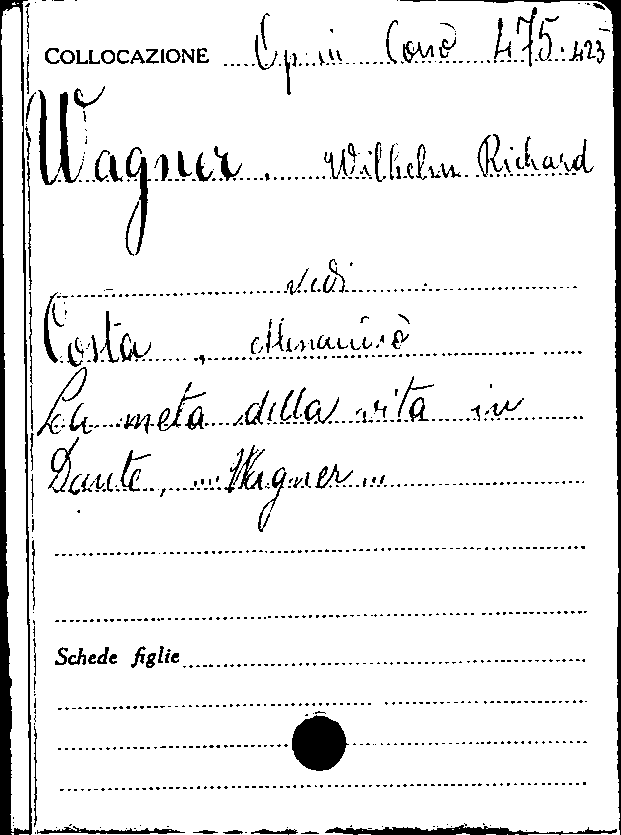 COLLOCAZIONE Op. in Corso 475.423
Wagner, Wilhelm Richard
vedi
Costa,
La meta della vita in
Dante, ... Wagner ...
Schede figlie